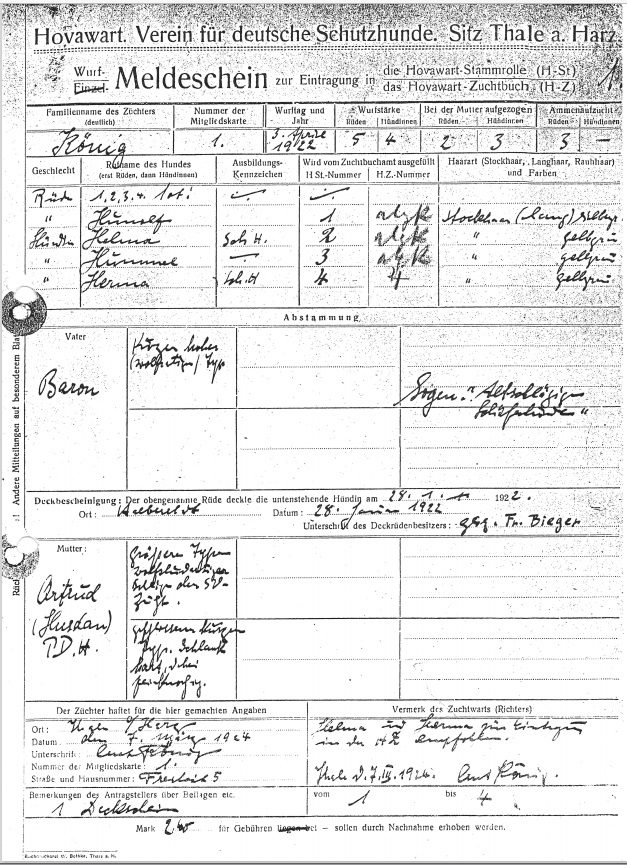 Hovawart. Verein für deutsche Schutzhunde. Sitz Thale a. Harz.
Wurf-
Einzel-
Meldeschein zur Eintragung in die Hovawart-Stammrolle (H-St)
das Hovawart-Zuchtbuch (H-Z)
1.
Familienname des Züchters (deutlich) Nummer der Mitgliedskarte Wurftag und Jahr Wurfstärke Rüden Hündinnen Bei der Mutter aufgezogen Rüden Hündinnen Ammenaufzucht Rüden Hündinnen
König 1. 3. April 1922 5 4 2 3 3 —
Geschlecht Rufname des Hundes (erst Rüden, dann Hündinnen) Ausbildungs-Kennzeichen Wird vom Zuchtbuchamt ausgefüllt H St.-Nummer H.Z.-Nummer Haarart (Stockhaar, Langhaar, Rauhhaar) und Farben
Rüde 1. 2. 3. 4. tot:
" 1 Stockhaar (lang)
Hündin Helma Sch H. 2 " gelbgrau
" Hummel — 3 " gelbgrau
" Herma Sch. H 4 4 " gelbgrau
Abstammung
Vater
Baron
Sogen. "Altschlägiger
Schäferhunde"
Deckbescheinigung: Der obengenannte Rüde deckte die untenstehende Hündin am 28. 1. 1922.
Ort: Datum: 28. Januar 1922
Unterschrift des Deckrüdenbesitzers: gez. Fr. Bieger
Mutter:
Größerer Typ
Zucht.
P.D.H.
Andere Mitteilungen auf besonderem Blat
Der Züchter haftet für die hier gemachten Angaben
Vermerk des Zuchtwarts (Richters)
Ort:
Datum: den 7. März 1924
Unterschrift:
Nummer der Mitgliedskarte: 1.
Straße und Hausnummer: 5
Helma und Herma zur Eintragung
in das HZ empfohlen.
Thale d. 7. III. 1924. Curt König.
Bemerkungen des Antragstellers über Beilagen etc.
1 Deckschein
vom 1 bis 4
Mark 2.40 für Gebühren liegen bei – sollen durch Nachnahme erhoben werden.